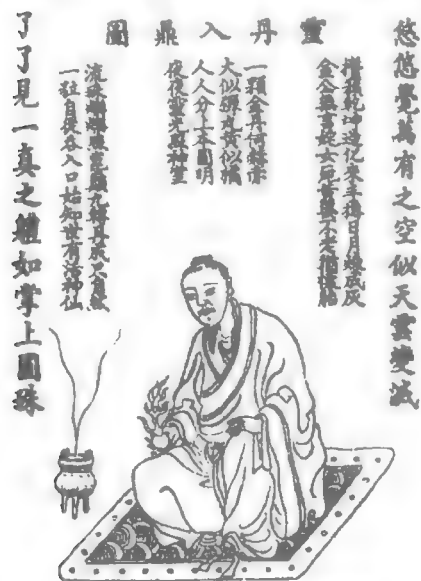 悠悠覺萬有之空似天雲變滅
靈丹入鼎圖
攢簇乾坤造化來手搏日月煉成灰
金公無言姹女死黃婆不老猶懷胎
一顆金丹何赫赤
大似彈丸黃似橘
人人分上本圓明
夜夜靈光照神室
流珠九轉丹成自然
一粒自從吞入口始知世有活神仙
了了見一真之體如掌上圓珠